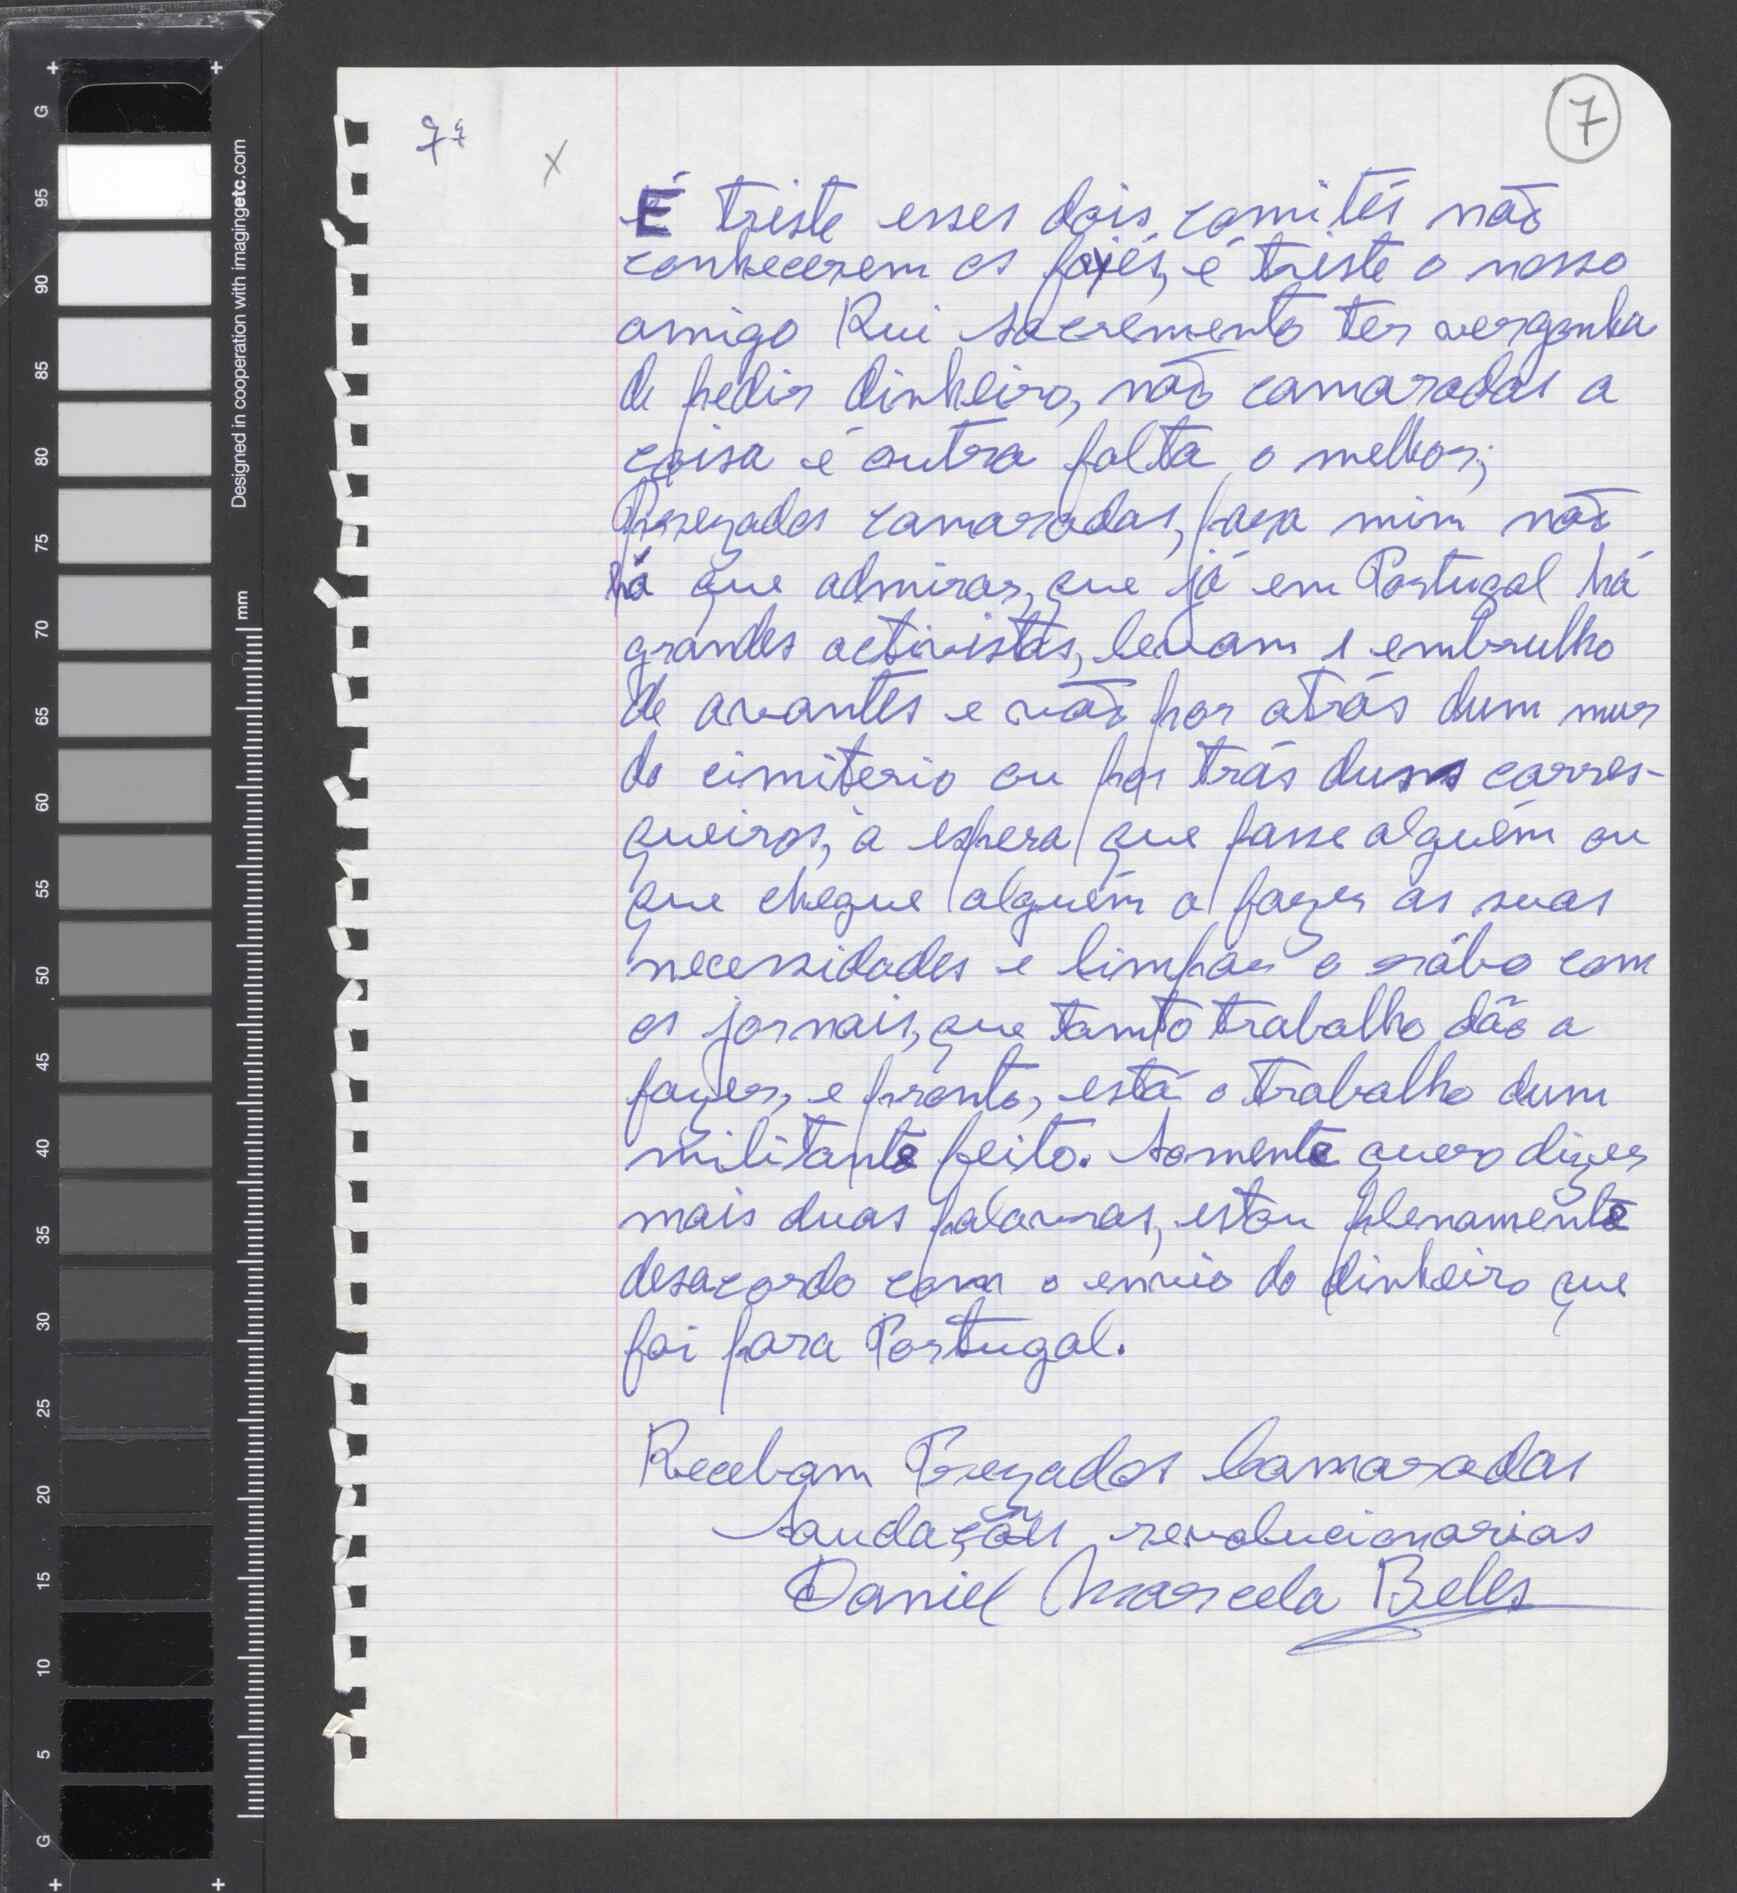 7ª
X
7
É triste esses dois comités não
conhecerem os foiés, é triste o nosso
amigo Rui Sacremento ter vergonha
de pedir dinheiro, não camaradas a
coisa é outra falta o melhor;
Prezados camaradas, para mim não
há que admirar, que já em Portugal há
grandes activistas, levam 1 embrulho
de avantes e vão por atrás dum mur
do cimiterio ou por trás duns carres-
queiros, à espera que passe alguém ou
que chegue alguém a fazer as suas
necessidades e limpar o rábo com
os jornais, que tamto trabalho dão a
fazer, e pronto, está o trabalho dum
militante feito. Somente quero dizer
mais duas palavras, estou plenamente
desacordo com o envio do dinheiro que
foi para Portugal.
Recebam Prezados Camaradas
Saudações revolucionarias
Daniel Marcela Beles
Designed in cooperation with imagingetc.com
mm
G
95
90
85
80
75
70
65
60
55
50
45
40
35
30
25
20
15
10
5
G